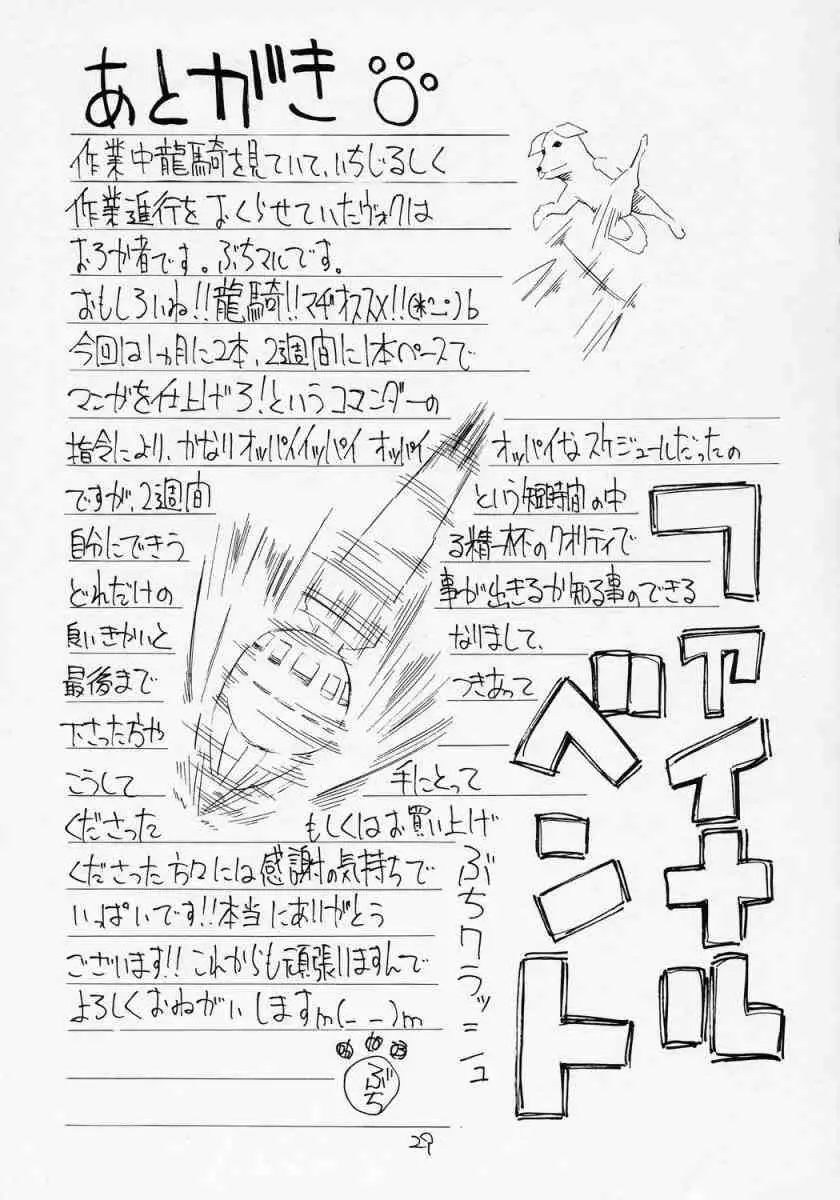 あとがき
作業中龍騎を見ていて、いちじるしく
作業進行をおくらせていたヴォクは
おろか者です。ぶちマルです。
おもしろいね!!龍騎!!マヂオススメ!!(*^_^)b
今回は1ヵ月に2本、2週間に1本ペースで
マンガを仕上げろ!というコマンダーの
指令により、かなりオッパイイッパイ オッパイ オッパイなスケジュールだったの
ですが、2週間という短時間の中
自分にできうる精一杯のクオリティで
どれだけの事が出きるか知る事のできる
良いきかいとなりまして、
最後までつきあって
下さった方や
こうして手にとって
くださった もしくはお買い上げ
くださった方々には感謝の気持ちで
いっぱいです!!本当にありがとう
ございます!!これからも頑張りますんで
よろしくおねがいしますm(_ _)m
ぶち
ファイナル
ベント
ぶちクラッシュ
29